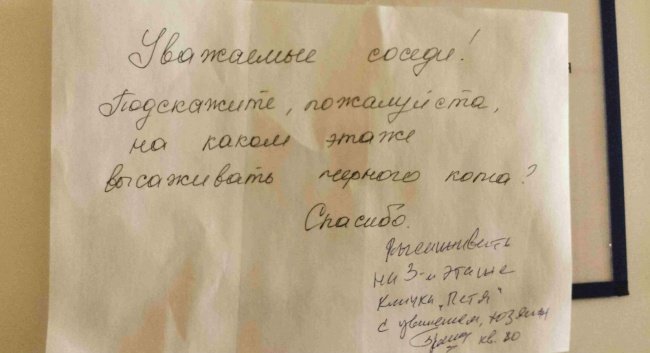 Уважаемые соседи!
Подскажите, пожалуйста,
на каком этаже
высаживать черного кота?
Спасибо.
Высаживать
на 3-м этаже
кличка "Петя"
с уважением, хозяин
кв. 80